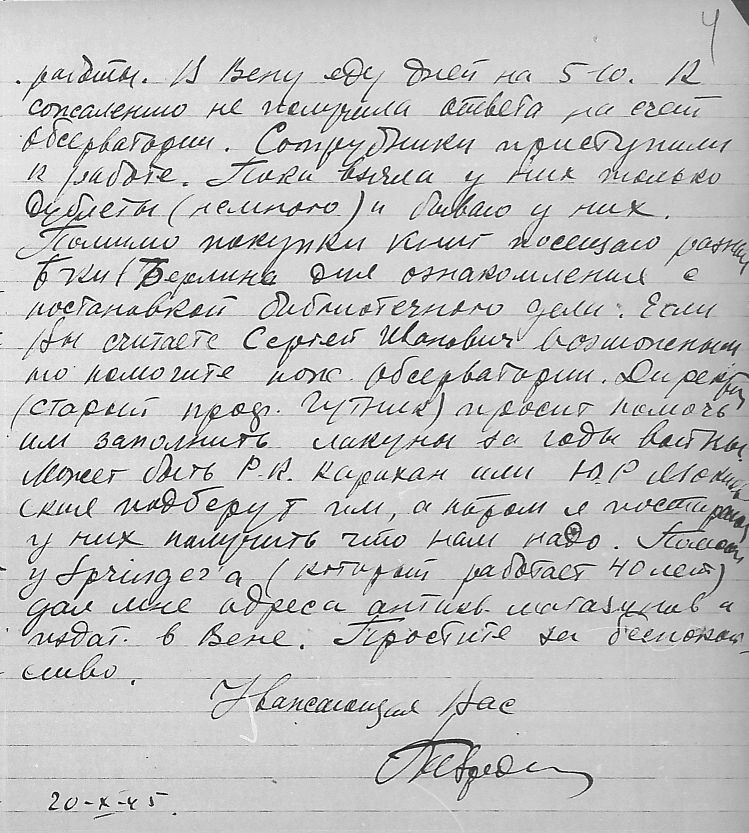 4
работы. В Вену еду дней на 5-10. К
сожалению не получила ответа на счет
обсерватории. Сотрудники приступили
к работе. Пока взяла у них только
дублеты (немного) и бываю у них.
Помимо покупки книг посещаю разные
б-ки (Берлина для ознакомления с
постановкой библиотечного дела. Если
Вы считаете Сергей Иванович возможным
то помогите обсерватории. Директор
(старый проф. Гутник) просит помочь
им заполнить лакуны за годы войны.
Может быть Р.К. Карахан или Ю.Р.
подберут им, а потом я постараюсь
у них получить что нам надо.
у Springer'а (который работает 40 лет)
дал мне адреса антикв. магазинов и
издат. в Вене. Простите за беспокой-
ство.
Уважающая Вас
20-X-45.